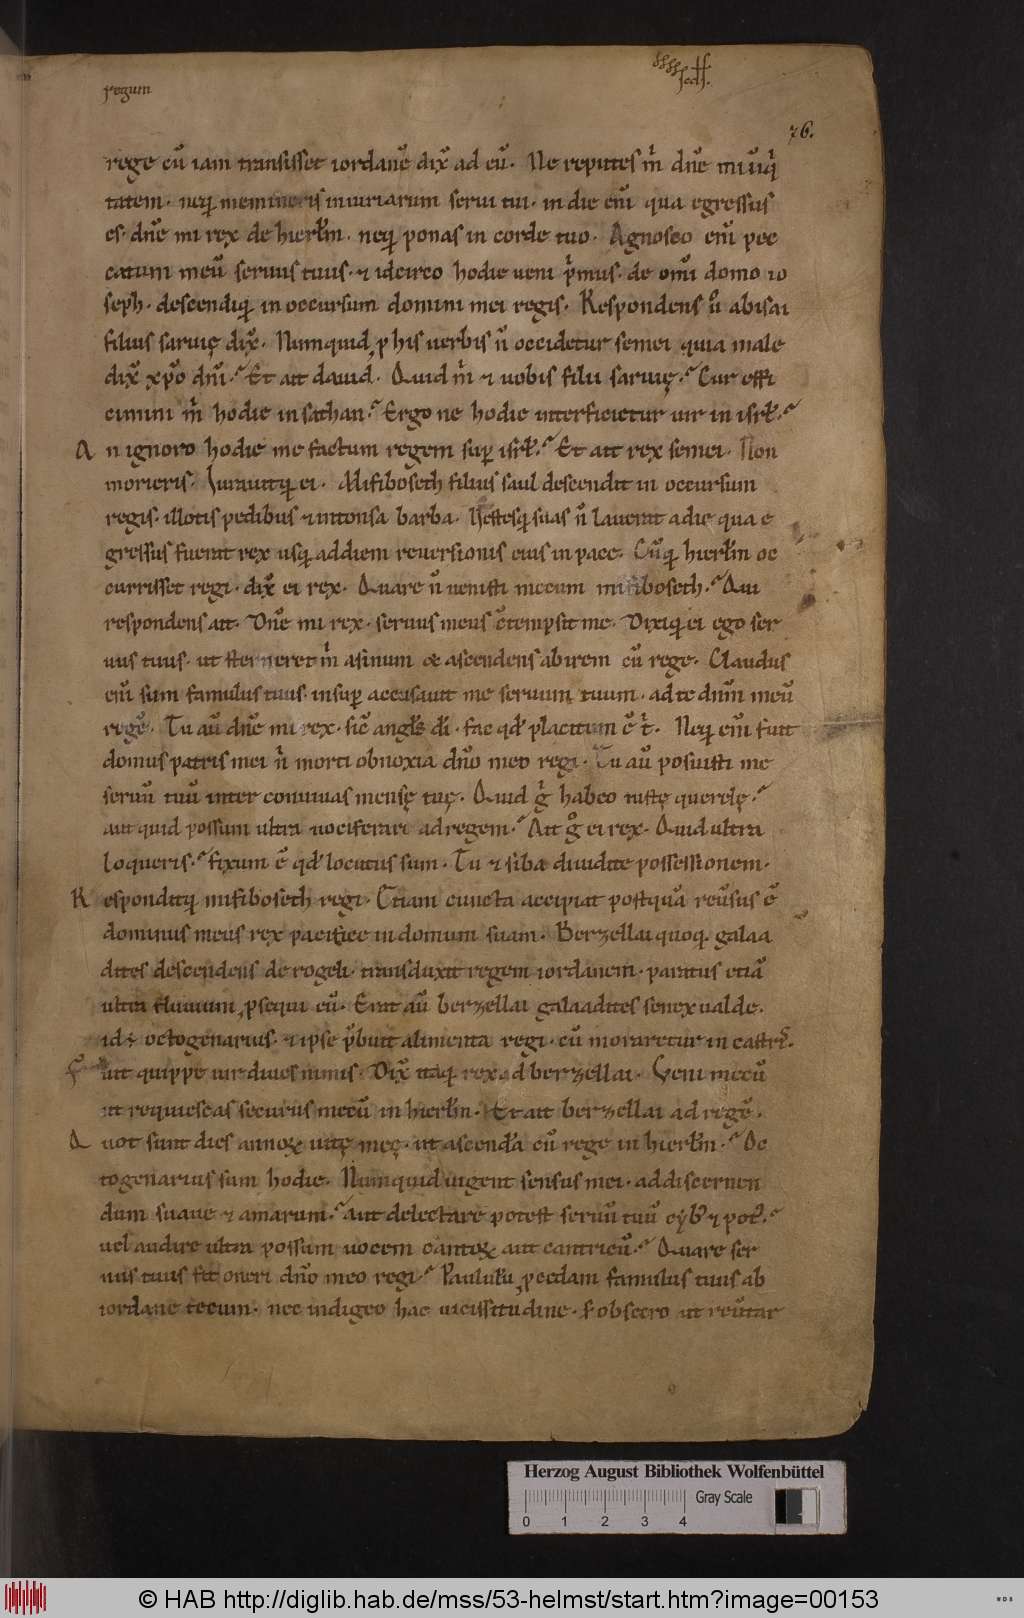 regum
76.
rege cū iam transisset iordanē dix̄ ad eū. Ne reputes m̄ dn̄e mi iniq̄
tatem. neq; memineris iniuriarum serui tui. in die em̄ qua egressus
es. dn̄e mi rex de hierl̄m. neq; ponas in corde tuo. Agnosco em̄ pec
catum meū seruus tuus. ⁊ idcirco hodie ueni p̄mus. de om̄i domo io
seph. descendiq; in occursum domini mei regis. Respondens ů abisai
filius saruię dix̄. Numquid ꝓ his uerbis n̄ occidetur semei quia male
dix̄ xp̄o dn̄i. Et ait dauid. Quid m̄ ⁊ uobis filii saruię. Cur effi
cimini m̄ hodie in sathan. Ergo ne hodie interficietur uir in isrł.
An ignoro hodie me factum regem sup̄ isrł. Et ait rex semei. Non
morieris. Iurauitq; ei. Mifiboseth filius saul descendit in occursum
regis. illotis pedibus ⁊ intonsa barba. Vestesq; suas n̄ lauerat a die qua e
gressus fuerat rex usq; ad diem reuersionis eius in pace. Cūq; hierl̄m oc
currisset regi. dix̄ ei rex. Quare n̄ uenisti mecum mifiboseth. Qui
respondens ait. Dn̄e mi rex. seruus meus c̄tempsit me. Dixiq; ei ego ser
uus tuus. ut sterneret m̄ asinum & ascendens abirem cū rege. Claudus
em̄ sum famulus tuus. insup̄ accusauit me seruum tuum. ad te dn̄m meū
regē. Tu aū dn̄e mi rex. sic̄ angłs dī. fac qđ placitum ē t̄. Neq; em̄ fuit
domus patris mei n̄ morti obnoxia dn̄o meo regi. Tu aū posuisti me
seruū tuū inter conuiuas mensę tuę. Quid g̊ habeo iustę querelę.
aut quid possum ultra uociferari ad regem. Ait g̊ ei rex. Quid ultra
loqueris. fixum ē qđ locutus sum. Tu ⁊ siba diuidite possessionem.
Responditq; mifiboseth regi. Etiam cuncta accipiat postquā reūsus ē
dominus meus rex pacifice in domum suam. Berzellai quoq; galaa
dites descendens de rogeli. transduxit regem iordanem. paratus etiā
ultra fluuium ꝓsequi eū. Erat aū berzellai galaadites senex ualde.
id ÷ octogenarius. ⁊ ipse p̄buit alimenta regi. cū moraretur in castris.
Fuit quippe uir diues nimis. Dix̄ itaq; rex ad berzellai. Veni mecū
ut requiescas securus mecū in hierl̄m. Et ait berzellai ad regē.
Quot sunt dies annoꝝ uitę meę. ut ascendā cū rege in hierl̄m. Oc
togenarius sum hodie. Numquid uigent sensus mei. ad discernen
dum suaue ⁊ amarum. aut delectare potest seruū tuū cyb; ⁊ pot;.
uel audire ultra possum uocem cantoꝝ aut cantricū. Quare ser
uus tuus fit oneri dn̄o meo regi. Paululū ꝓcedam famulus tuus ab
iordane tecum. nec indigeo hac uicissitudine. s; obsecro ut reūtar
Herzog August Bibliothek Wolfenbüttel
Gray Scale
0 1 2 3 4
© HAB http://diglib.hab.de/mss/53-helmst/start.htm?image=00153